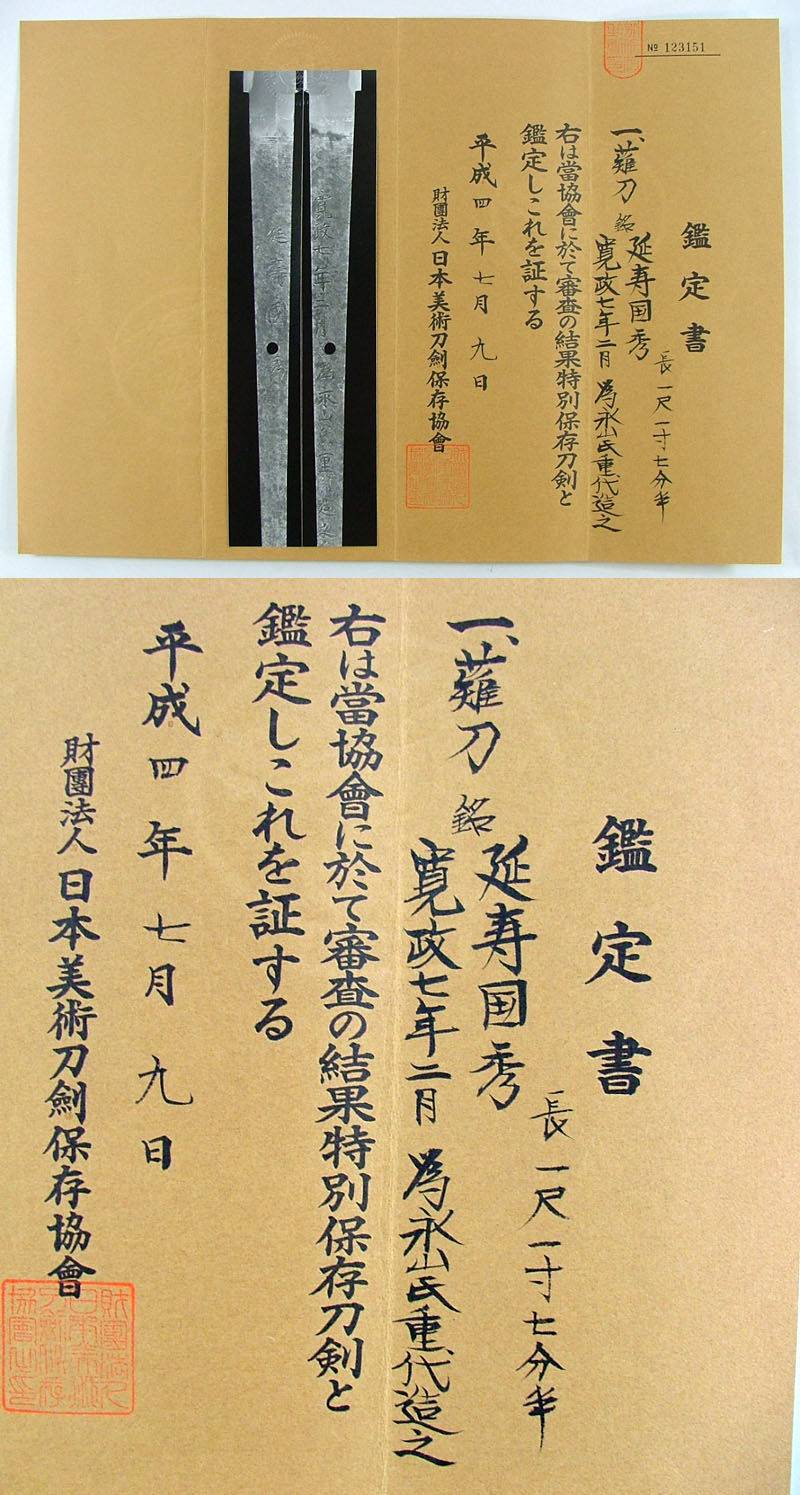 № 123151
鑑定書
長一尺一寸七分半
一、薙刀 銘 延寿国秀
寛政七年二月 為永山氏重代造之
右は當協會に於て審査の結果特別保存刀剣と
鑑定しこれを証する
平成四年七月九日
財團法人日本美術刀劍保存協會
寛政七年二月
鑑定書
長一尺一寸七分半
一、薙刀 銘 延寿国秀
寛政七年二月 為永山氏重代造之
右は當協會に於て審査の結果特別保存刀剣と
鑑定しこれを証する
平成四年七月九日
財團法人日本美術刀劍保存協會